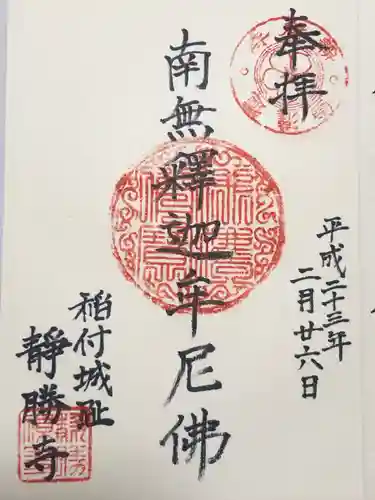 奉拝
平成二十三年
二月廿六日
南無釋迦牟尼佛
稲付城趾
靜勝寺